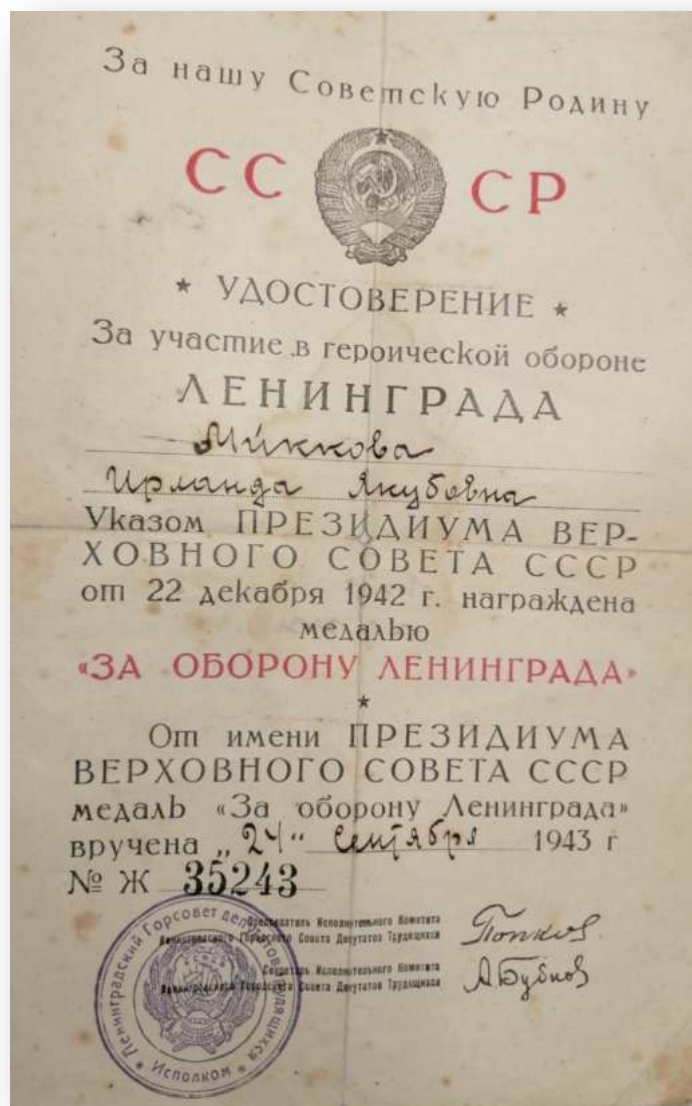 За нашу Советскую Родину
СС СР
* УДОСТОВЕРЕНИЕ *
За участие в героической обороне
ЛЕНИНГРАДА
Миккова
Ирланда Якубовна
Указом ПРЕЗИДИУМА ВЕР-
ХОВНОГО СОВЕТА СССР
от 22 декабря 1942 г. награждена
медалью
«ЗА ОБОРОНУ ЛЕНИНГРАДА»
*
От имени ПРЕЗИДИУМА
ВЕРХОВНОГО СОВЕТА СССР
медаль «За оборону Ленинграда»
вручена „24“ Сентября 1943 г
№ Ж 35243
Председатель Исполнительного Комитета
Ленинградского Городского Совета Депутатов Трудящихся
Попков
Секретарь Исполнительного Комитета
Ленинградского Городского Совета Депутатов Трудящихся
А Бубнов
Ленинградский Горсовет депутатов трудящихся
* Исполком *